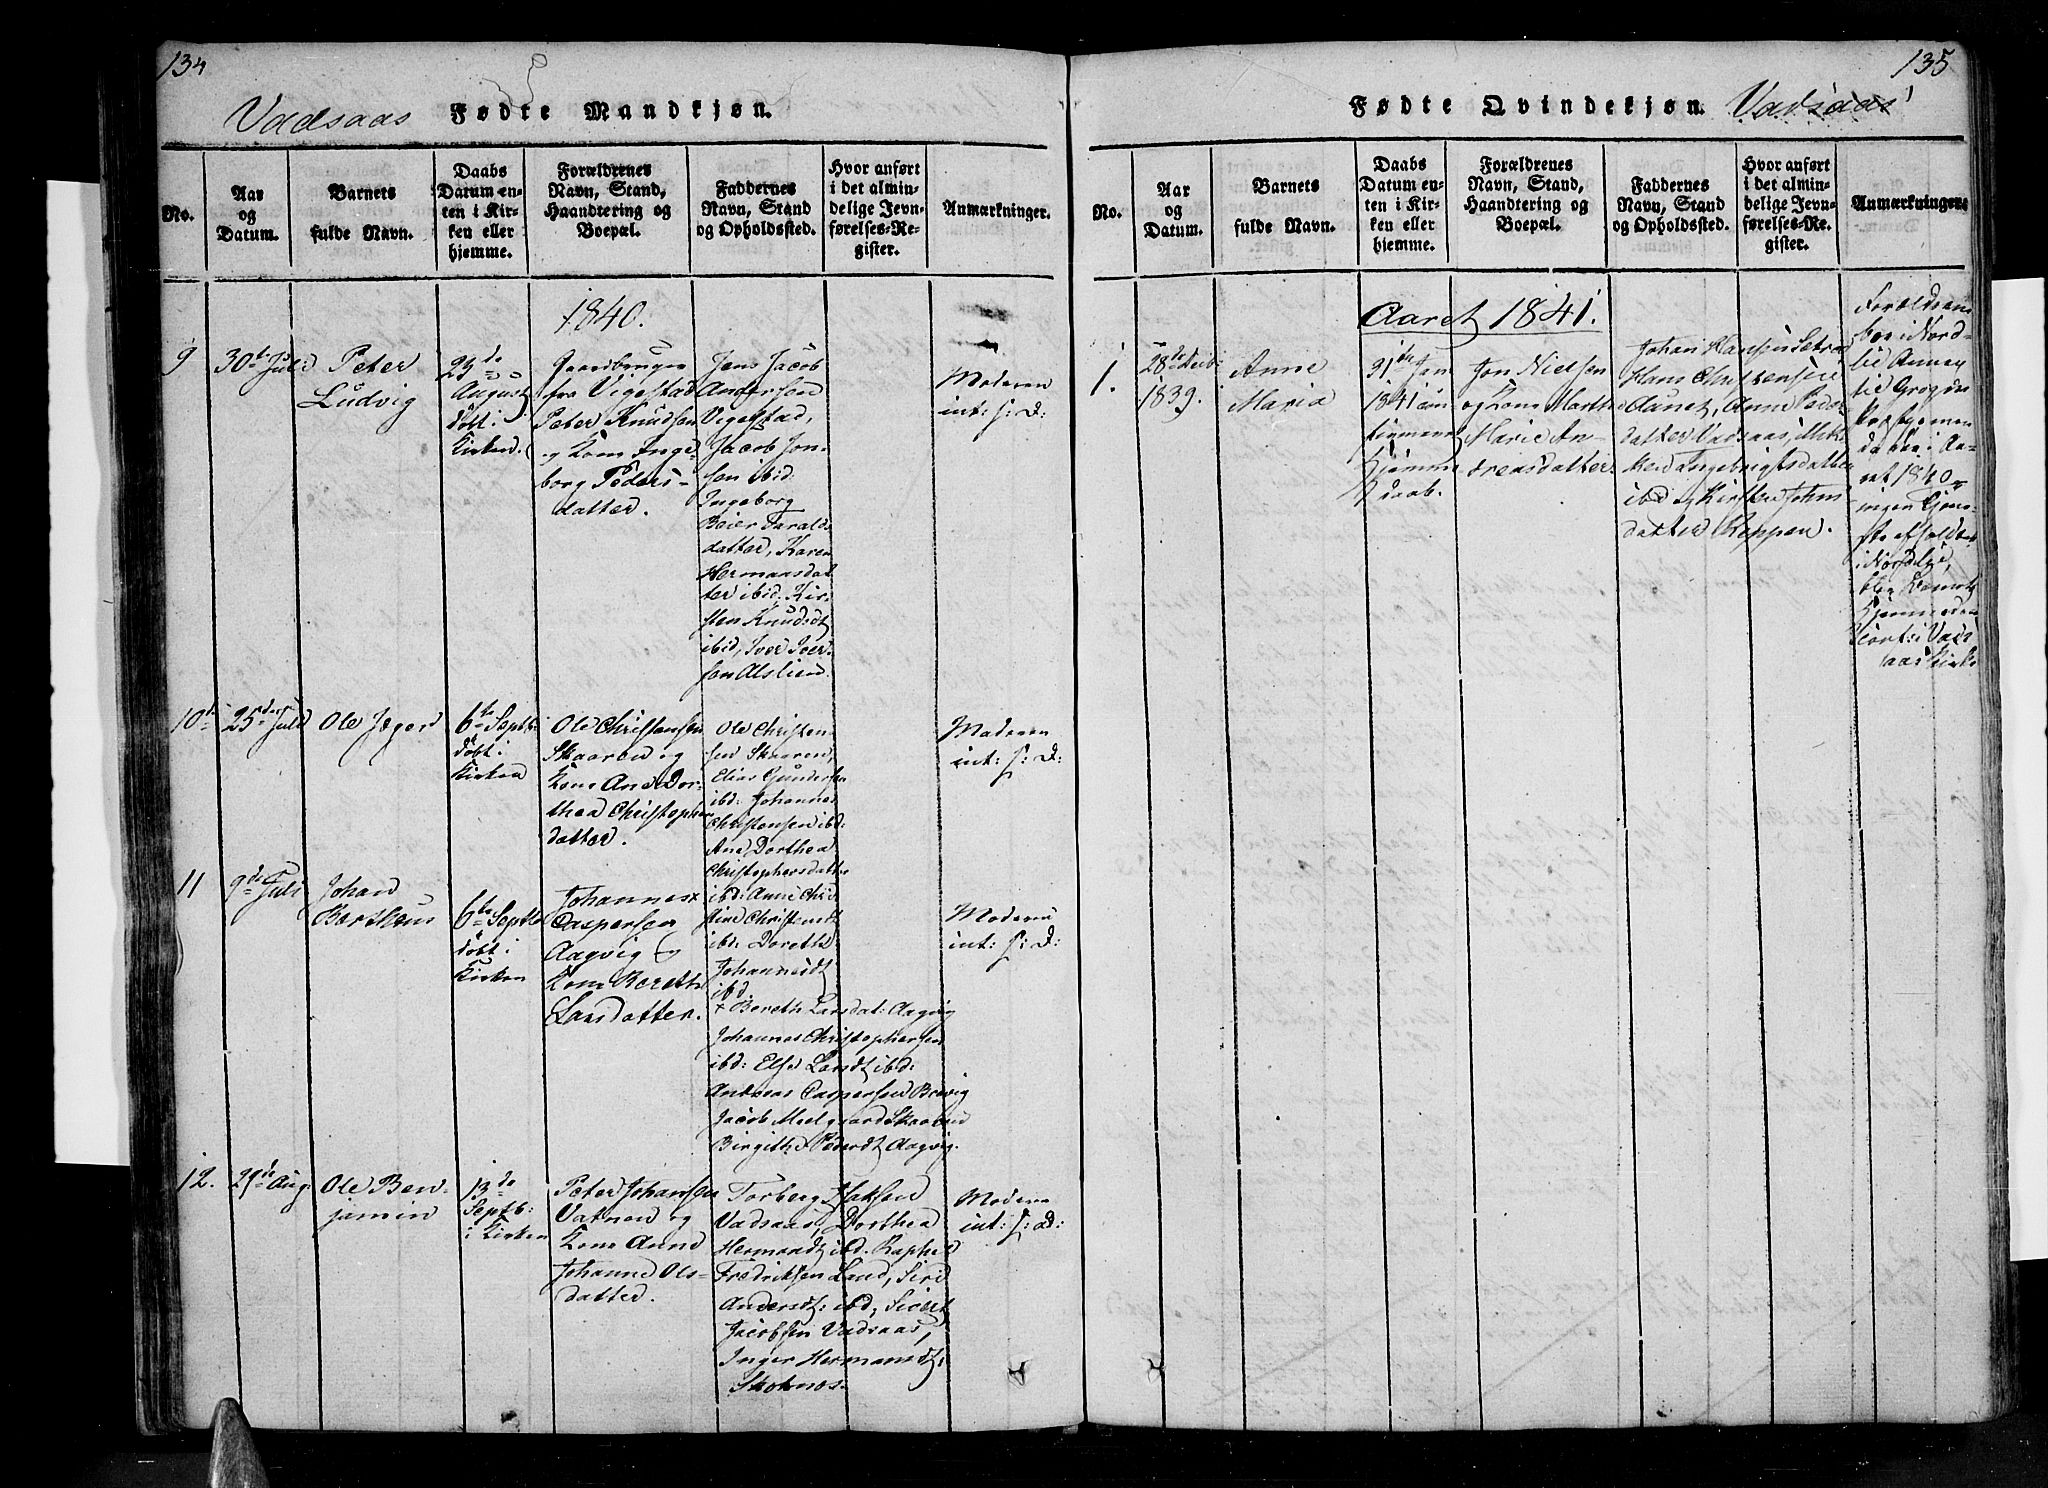 134
Vadsaas Fødte Mandkjøn.
No.
Aar
og
Datum.
Barnets
fulde Navn.
Daabs
Datum en-
ten i Kir-
ken eller
hjemme.
Forældrenes
Navn, Stand,
Haandtering og
Boepæl.
Faddernes
Navn, Stand
og Opholdssted.
Hvor anført
i det almin-
delige Jevn-
førelses-Re-
gister.
Anmærkninger.
1840.
9
30de Juli
Peter
Ludvig
23de
August
døbt i
Kirken.
Gaardbruger
fra Vigestad
Peter Knudsen
og Kone Inge-
borg Peders-
datter.
Jens Jacob
Anderson
Vigestad,
Jacob Jon-
sen ibid.
Ingeborg
Beier Tarald-
datter, Karen
Hermansdat
ter ibid. Kir
sten Knudsdt
ibid, Iver Iver-
sen Alslien.
Moderen
int: s: d:
10de
25de Juli
Ole Jæger
6te Septb:
døbt i
Kirken
Ole Christensen
Skaaren og
Kone Ane Dor-
thea Christopher
datter.
Ole Christen-
sen Skaaren,
Elias Gundersen
ibd: Johannes
Christensen ibd:
Ane Dorthea
Christophersdatter
ibd: Anne Chri
stine Christensdt
ibd: Doreth
Johannesdt
ibd
Moderen
int: s: d:
11
9de Juli
Johan
Bertheus
6te Septbr
døbt i
Kirken
Johannes
Caspersen
Aagvig og
Kone Bereth
Larsdatter.
+ Bereth Larsdat: Aagvig
Johannes Christophersen
ibd: Else Larsdt ibd:
Andreas Caspersen Brevig
Jacob Meelgaard Skaaren
Birgithe Pedersdt Aagvig.
Moderen
int: s: d:
12.
29de Aug:
Ole Ben-
jamin
13de
Septb:
i Kirken
Peter Johansen
Vatnen og
Kone Anne
Johanne Ols-
datter.
Torberg Isaksen
Vadsaas, Dorthea
Hermansdt ibd. Raphel
Fredriksen Land, Siri
Andersdt: ibd, Sivert
Jacobsen Vadsaas,
Inger Hermansdt:
Skoknes.
Moderen
int: s: d:
135
Fødte Qvindekjøn. Vadsaas
No.
Aar
og
Datum.
Barnets
fulde Navn.
Daabs
Datum en-
ten i Kir-
ken eller
hjemme.
Forældrenes
Navn, Stand,
Haandtering og
Boepæl.
Faddernes
Navn, Stand
og Opholdssted.
Hvor anført
i det almin-
delige Jevn-
førelses-Re-
gister.
Anmærkninger.
Aaret 1841.
1.
28de Decb:
1839.
Anne
Maria
31te Jan
1841 con
firmeret
Hjemme
daab.
Jon Nielsen
og Kone Marth
Marie An-
dreasdatter.
Johan Hansen
Hans Christensen
Aunet, Anne Peder
datter Vadsaas,
Ingebrigtsdatter
ibd og Kirsten John
datter Reppen.
Forældrene
boe i Nord-
lie Annex
til Grong Præ
da der i Aa-
ret 1840
ingen Tjene-
ste afholdtes
i Nordlie,
blev Barnets
Hjemmedaab
conf: i Vads
aas Kirke